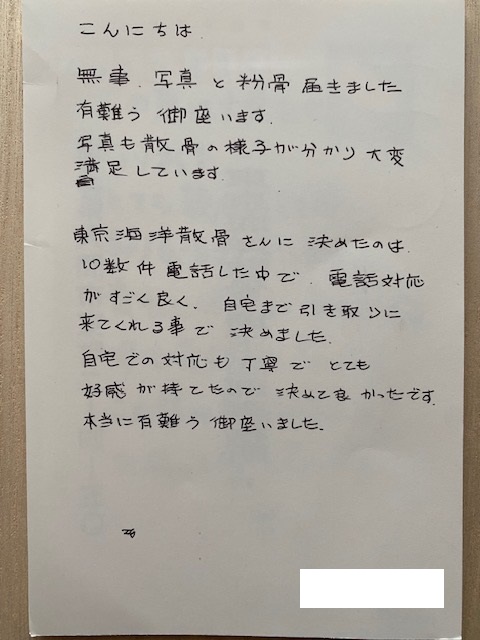 こんにちは.
無事、写真と粉骨届きました
有難う御座います.
写真も散骨の様子が分かり大変
満足しています.
東京海洋散骨さんに決めたのは.
10数件電話した中で、電話対応
がすごく良く、自宅まで引き取りに
来てくれる事で決めました.
自宅での対応も丁寧でとても
好感が持てたので決めて良かったです.
本当に有難う御座いました.